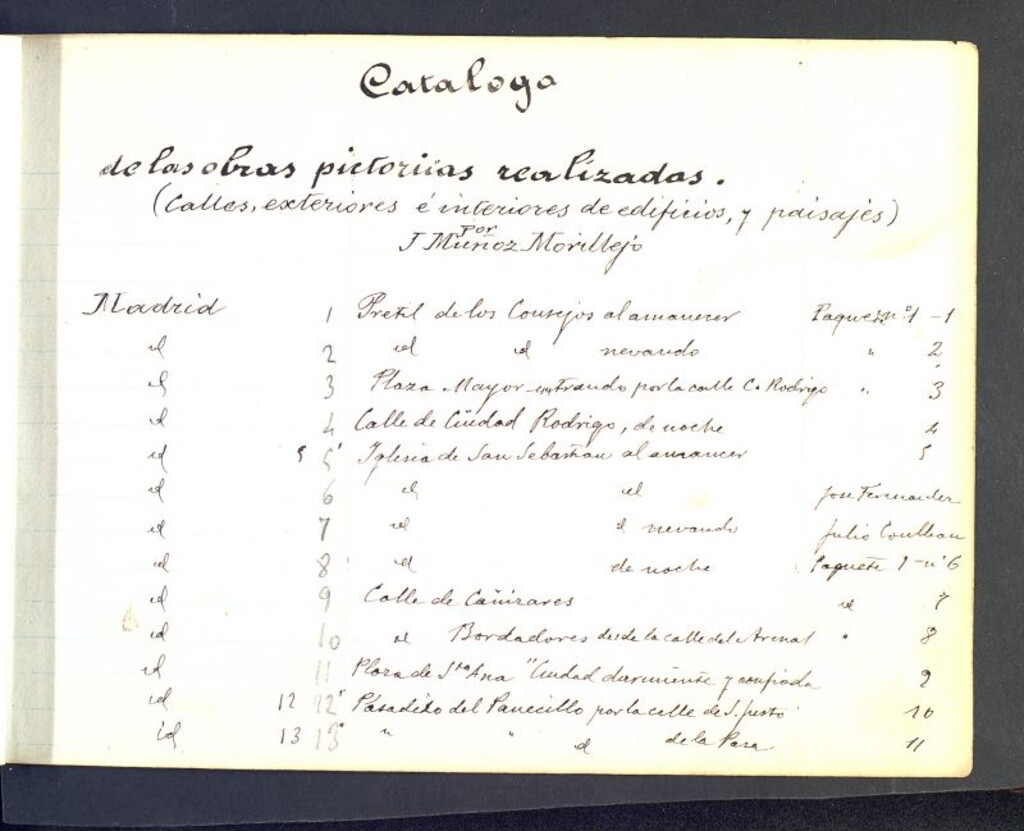 Catalogo
de las obras pictoricas realizadas.
(Calles, exteriores é interiores de edificios, y paisajes)
por
J Muñoz Morillejo
Madrid 1 Pretil de los Consejos al amanecer Paquete nº 1 - 1
id 2 id id nevando " 2
id 3 Plaza Mayor entrando por la calle C. Rodrigo " 3
id 4 Calle de Ciudad Rodrigo, de noche 4
id 5 5 Iglesia de San Sebastian al amanecer 5
id 6 id id Jose Fernandez
id 7 id id nevando Julio
id 8 id de noche Paquete 1 - nº 6
id 9 Calle de Cañizares id 7
id 10 id Bordadores desde la calle del Arenal " 8
id 11 Plaza de Sta Ana "Ciudad durmiente y confiada 9
id 12 12 Pasadizo del Panecillo por la calle de S. Justo 10
id 13 13 " " id de la Pasa 11